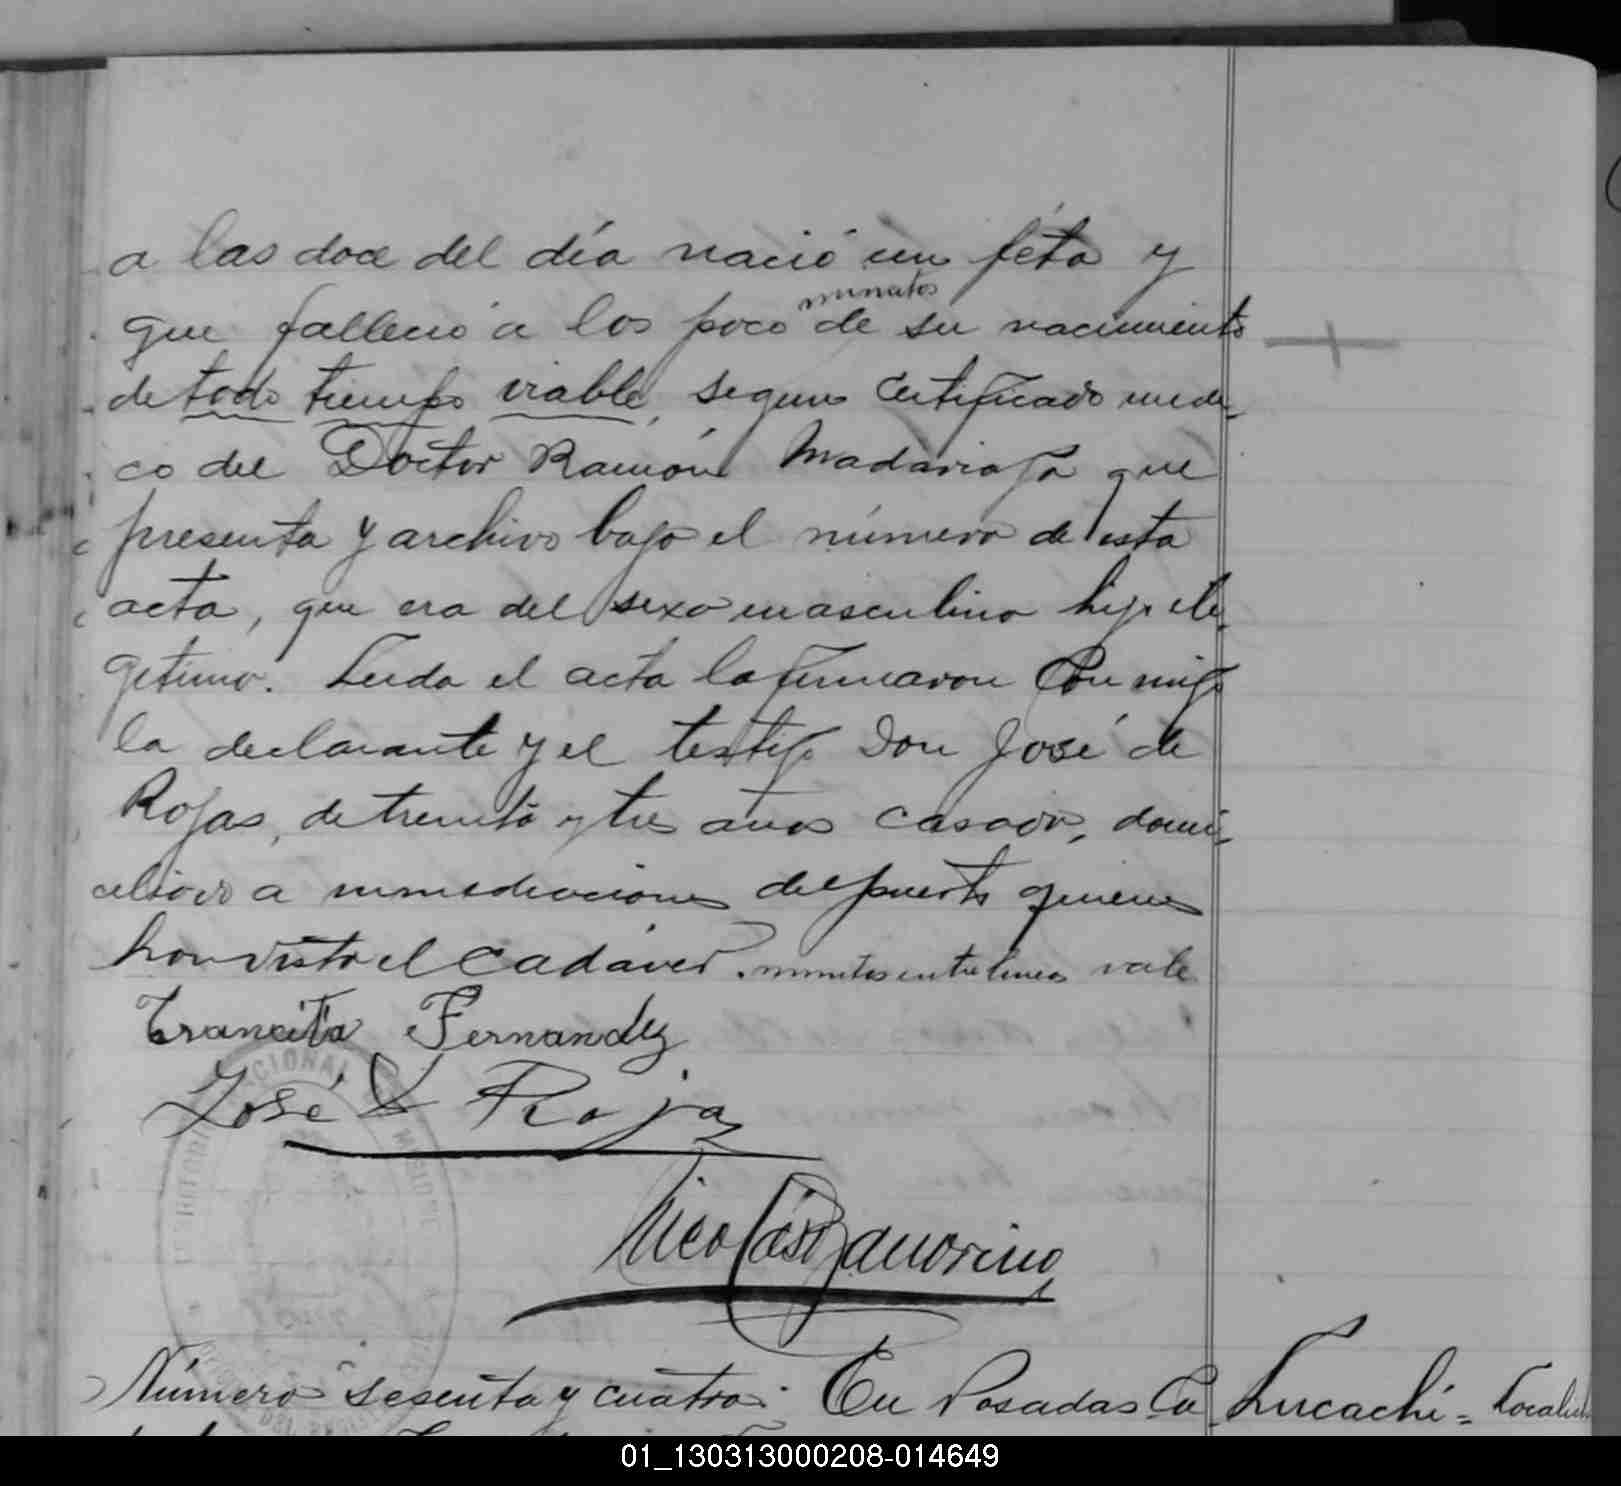 a las doce del día nació un féto y
que falleció a los poco minutos de su nacimiento
de todo tiempo viable, segun certificado medi-
co del Doctor Ramón Madariaga que
presenta y archivo bajo el número de esta
acta, que era del sexo masculino hijo ile-
getimo. Leida el acta la firmaron conmigo
la declarante y el testigo Don José de
Rojas, de treinta y tres años casado, domi-
ciliado a inmediaciones del puerto quienes
han visto el cadáver. minutos entre lineas vale
Trancita Fernandez
José D Rojas
Nicolás
Número sesenta y cuatro. En Posadas Ca
Lucachi = Localid
01_130313000208-014649